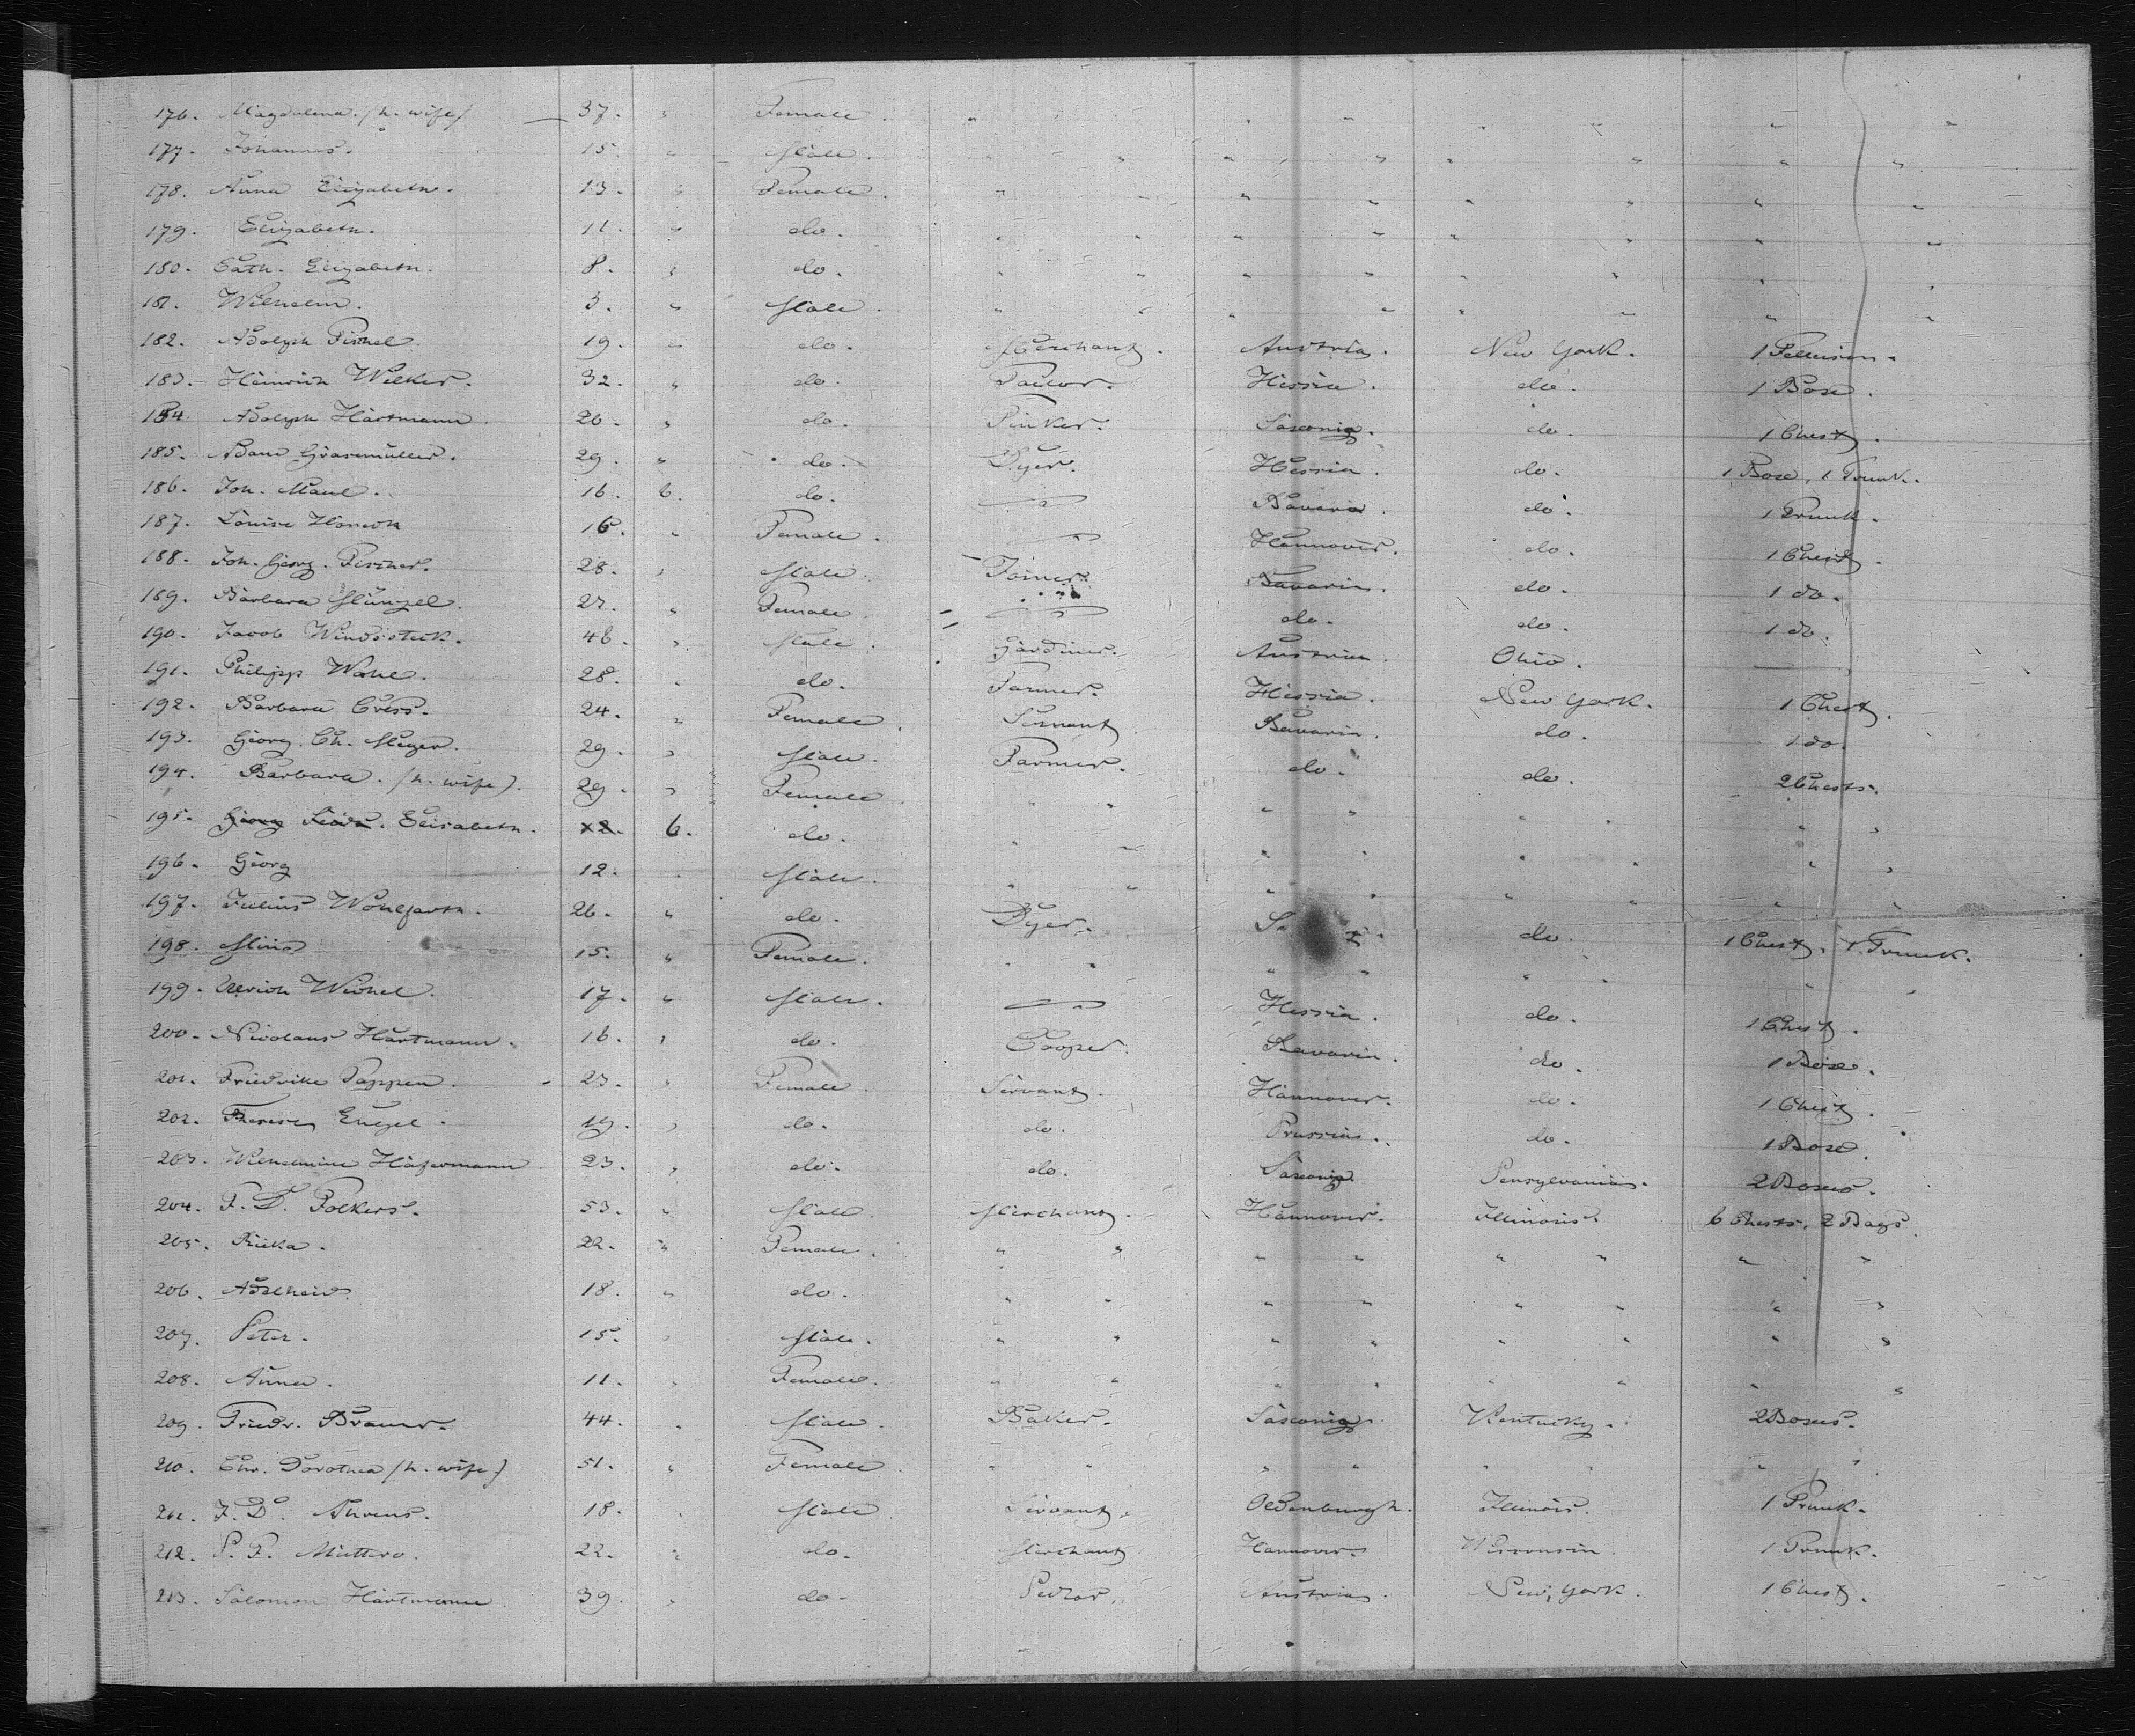 176. Magdalena. (h. wife) 37. " Female. " " " " " " " "
177. Johannes. 15. " Male. " " " " " " " "
178. Anna Elizabeth. 13. " Female. " " " " " " " "
179. Elizabeth. 11. " do. " " " " " " " "
180. Cath. Elizabeth. 8. " do. " " " " " " " "
181. Wilhelm. 3. " Male. " " " " " " " "
182. Adolph Fischel. 19. " do. Merchant. Austria. New York. 1
183. Heinrich Welker. 32. " do. Tailor. Hessia. do. 1 Box.
184. Adolph Hartmann. 26. " do. Saxonia. do. 1 Chest.
185. Adam Grasmüller. 29. " do. Dyer. Hessia. do. 1 Box, 1 Trunk.
186. Joh. Maul. 16. 6. do. — Bavaria. do. 1 Trunk.
187. Louise 16. " Female. — Hannover. do. 1 Chest.
188. Joh. Georg. Fischer. 28. " Male. Joiner. Bavaria. do. 1 do.
189. Barbara Münzel. 27. " Female. — do. do. 1 do.
190. Jacob 46. " Male. Gardiner. Austria. Ohio. —
191. Philipp Wahl. 28. " do. Farmer. Hessia. New York. 1 Chest.
192. Barbara Cress. 24. " Female. Servant. Bavaria. do. 1 do.
193. Georg. Ch. Meyer. 29. " Male. Farmer. do. do. 2 Chests.
194. Barbara. (h. wife). 29. " Female. " " " " " " " "
195. Georg Elisabeth. 6. do. " " " " " " " "
196. Georg 12. " Male. " " " " " " " "
197. Julius Wohlfarth. 26. " do. Dyer. do. 1 Chest. 1 Trunk.
198. Mina 15. " Female. " " " " " " " "
199. Ulrich Weichel. 17. " Male. — Hessia. do. 1 Chest.
200. Nicolaus Hartmann. 16. " do. Cooper. Bavaria. do. 1 Box.
201. Friedrike Pappen. 23. " Female. Servant. Hannover. do. 1 Chest.
202. Therese Engel. 19. " do. do. Prussia. do. 1 Box.
203. Wilhelmine Häfermann. 23. " do. do. Saxonia. Pensylvania. 2 Boxes.
204. F. D. Folkers. 53. " Male. Merchant. Hannover. Illinois. 6 Chests, 2 Bags.
205. Rieka. 22. " Female. " " " " " " " "
206. Adelheid. 18. " do. " " " " " " " "
207. Peter. 15. " Male. " " " " " " " "
208. Anna. 11. " Female. " " " " " " " "
209. Friedr. Bramer. 44. " Male. Baker. Saxonia. Kentucky. 2 Boxes.
210. Chr. Dorothea (h. wife) 51. " Female. " " " " " " " "
211. J. D. Ahrens. 18. " Male. Servant. Oldenburgh. Illinois. 1 Trunk.
212. P. F. 22. " do. Merchant. Hannover. Wisconsin. 1 Trunk.
213. Salomon Hartmann. 39. " do. Pedlar. Austria. New York. 1 Chest.